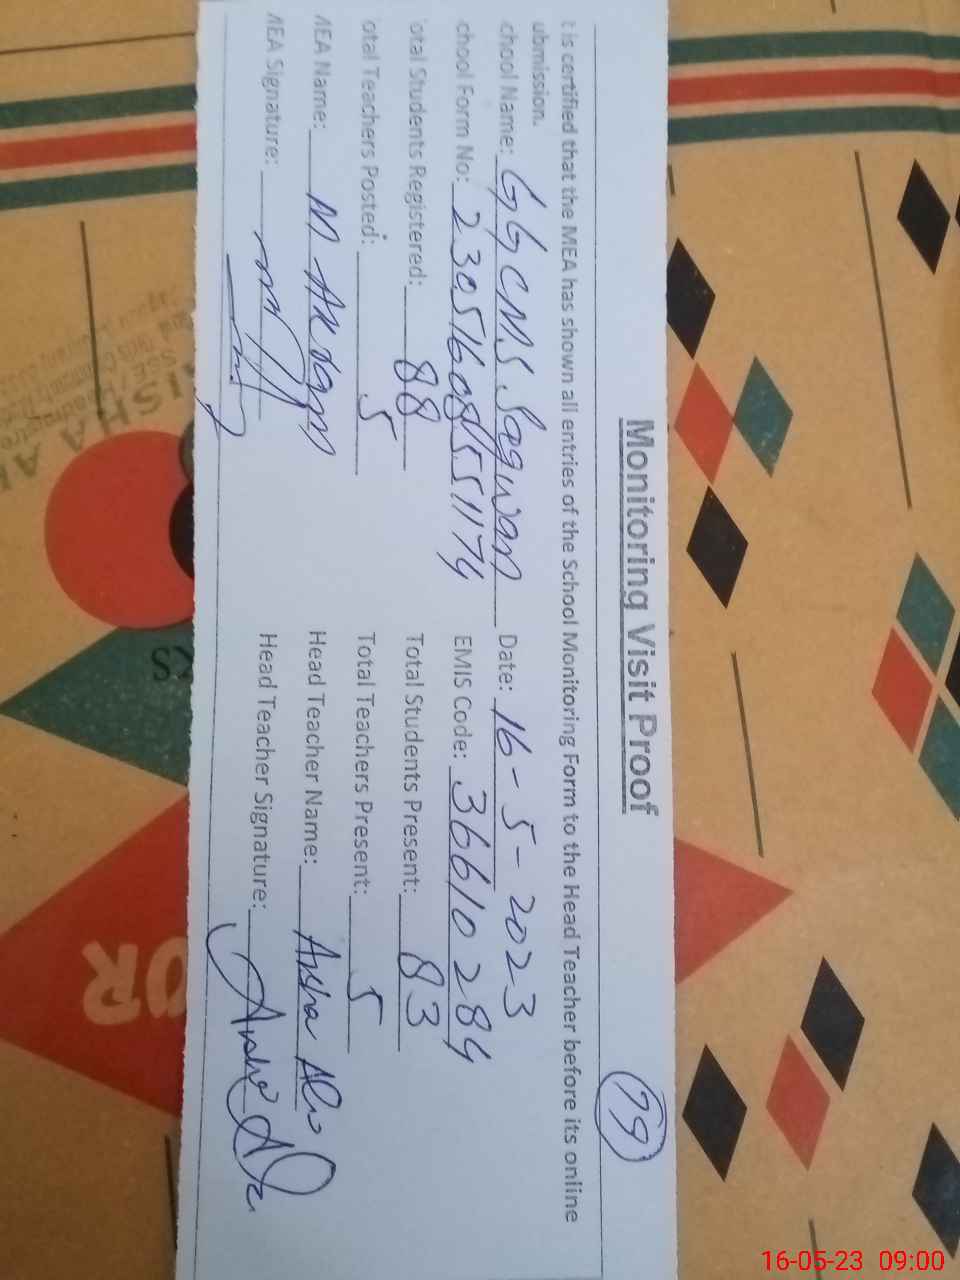 79
Monitoring Visit Proof
t is certified that the MEA has shown all entries of the School Monitoring Form to the Head Teacher before its online
ubmission.
chool Name: GGCMS Sagwan Date: 16-5-2023
chool Form No: EMIS Code: 36610284
otal Students Registered: 88 Total Students Present: 83
otal Teachers Posted: 5 Total Teachers Present: 5
MEA Name: M Akram Head Teacher Name:
MEA Signature: Head Teacher Signature:
16-05-23 09:00